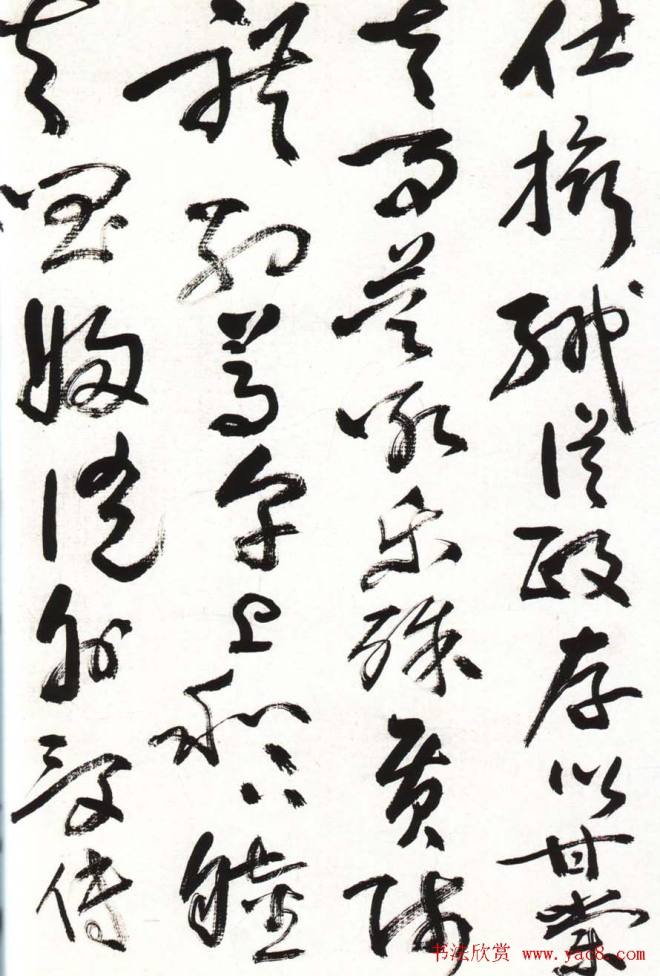 仕摄职从政存以甘棠
去而益咏乐殊贵贱
礼别尊卑上和下睦
夫唱妇随外受傅
书法欣赏 www.yac8.com